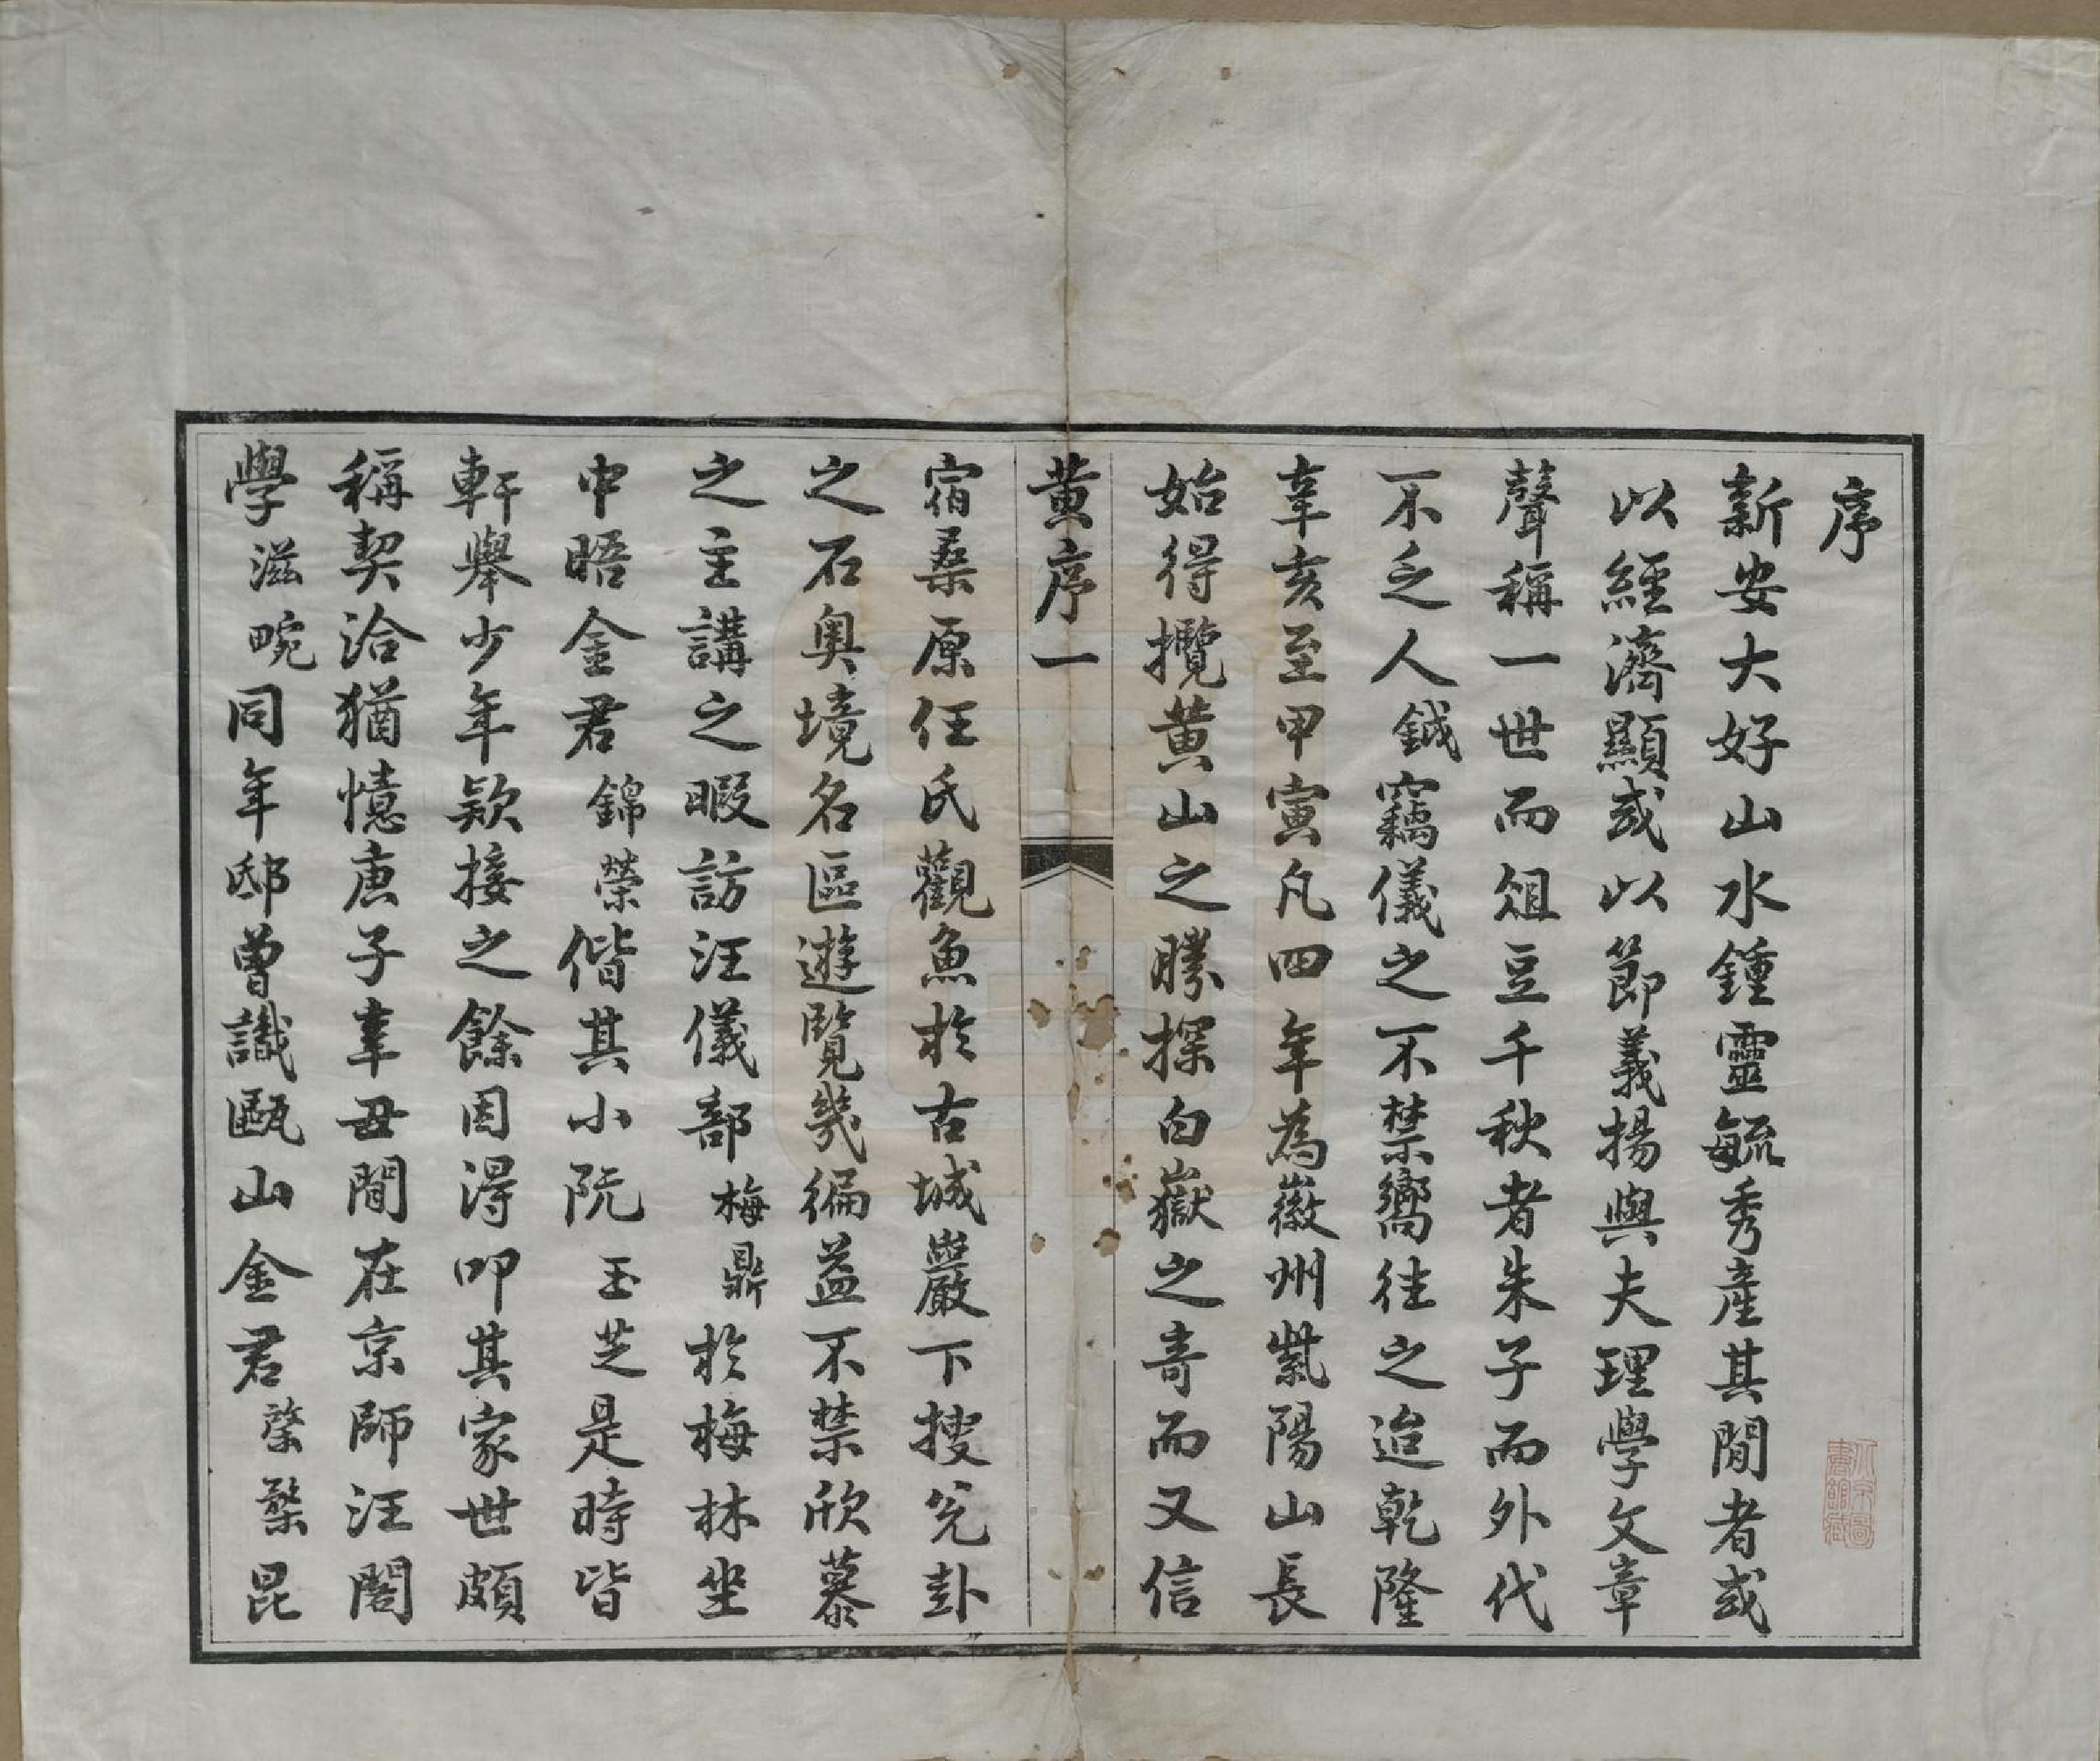 序
新安大好山水鍾靈毓秀產其間者或
以經濟顯或以節義揚與夫理學文章
聲稱一世而俎豆千秋者朱子而外代
不乏人鉞竊儀之不禁嚮往之迨乾隆
辛亥至甲寅凡四年為徽州紫陽山長
始得攬黃山之勝探白嶽之奇而又信
黄序一
宿桑原任氏觀魚於古城巖下搜兊卦
之石奥境名區遊覧幾徧益不禁欣慕
之主講之暇訪汪儀部梅鼎於梅林坐
中晤金君錦榮偕其小阮玉芝是時皆
軒舉少年欵接之餘因得叩其家世頗
稱契洽猶憶庚子辛丑間在京師汪閣
學滋畹同年邸曾識甌山金君棨槃昆